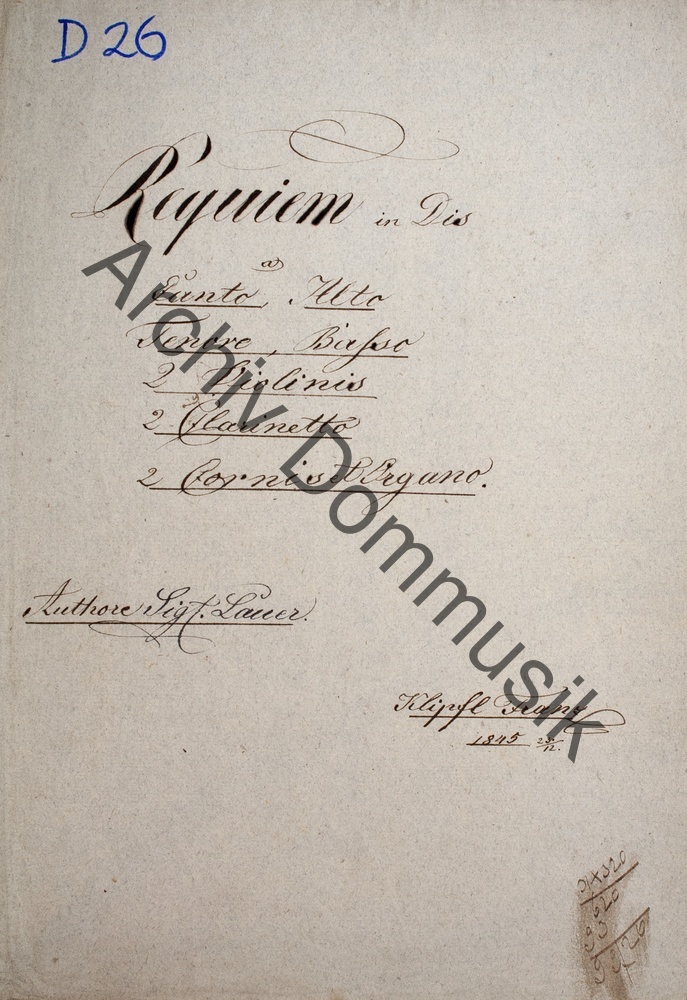 D 26
Requiem in Dis
a
Canto, Alto
Tenore, Basso
2 Violinis
2 Clarinetto
2 Cornis et Organo.
Authore Sigr. Lauer.
Klipfl Franz
1845 28/12.
Archiv Dommusik